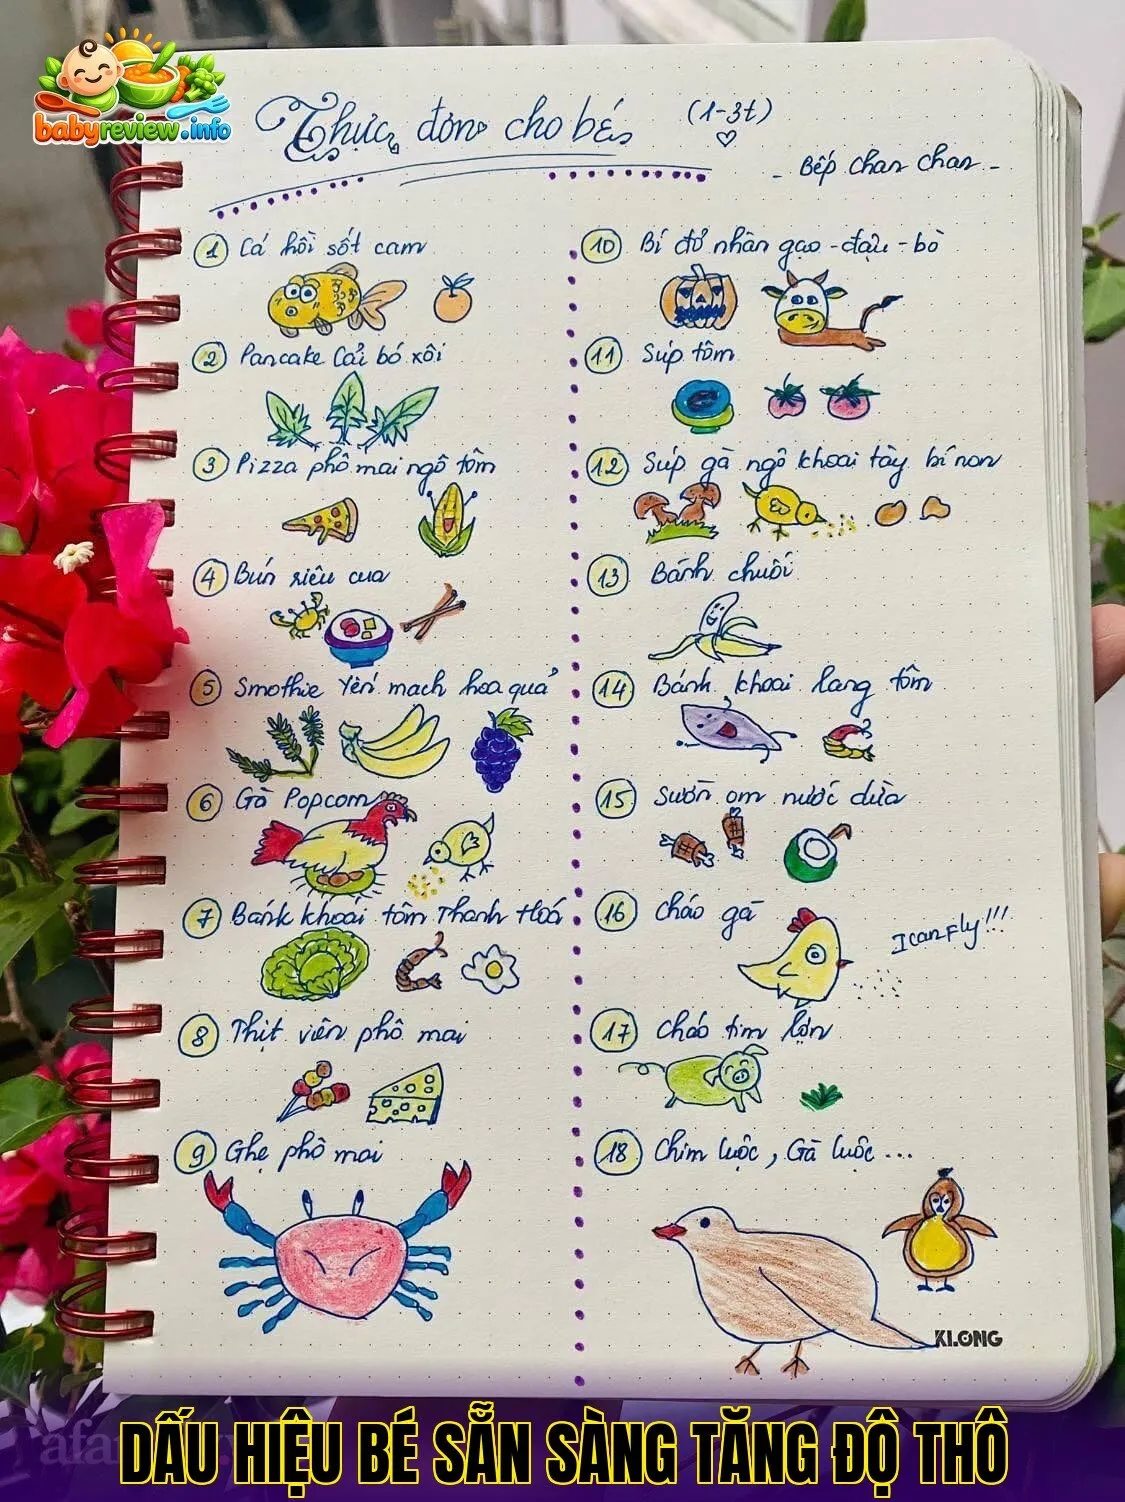 babyreview.info
Thực đơn cho bé (1-3t)
- Bếp chan chan -
1 Cá hồi sốt cam
2 Pancake Cải bó xôi
3 Pizza phô mai ngô tôm
4 Bún riêu cua
5 Smothie Yến mạch hoa quả
6 Gà Popcorn
7 Bánh khoái tôm Thanh Hoá
8 Thịt viên phô mai
9 Ghẹ phô mai
10 Bí đỏ nhân gạo - đậu - bò
11 Súp tôm
12 Súp gà ngô khoai tây bí non
13 Bánh chuối
14 Bánh khoai lang tôm
15 Sườn om nước dừa
16 Cháo gà
I can Fly!!!
17 Cháo tim lợn
18 Chim luộc, Gà luộc ...
KLONG
DẤU HIỆU BÉ SẴN SÀNG TĂNG ĐỘ THÔ